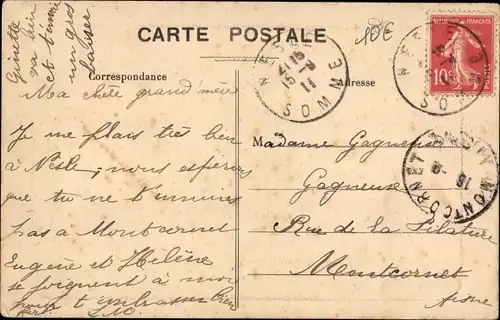 CARTE POSTALE
10€
Correspondance
Adresse
Ginette
va bien
et t'envoie
un gros
baiser
Ma chère grand'mère
Je me plais très bien
à Nesle, nous espérons
que tu ne t'ennuies
pas à Montcornet
Eugène et Hélène
se joignent à moi
pour t'embrasser bien
fort
Madame Gagneuse
Gagneuse
Rue de la Filature
Montcornet
Aisne
NESLE
SOMME
NESLE
SOMME
MONTCORNET
RÉPUBLIQUE FRANÇAISE
10